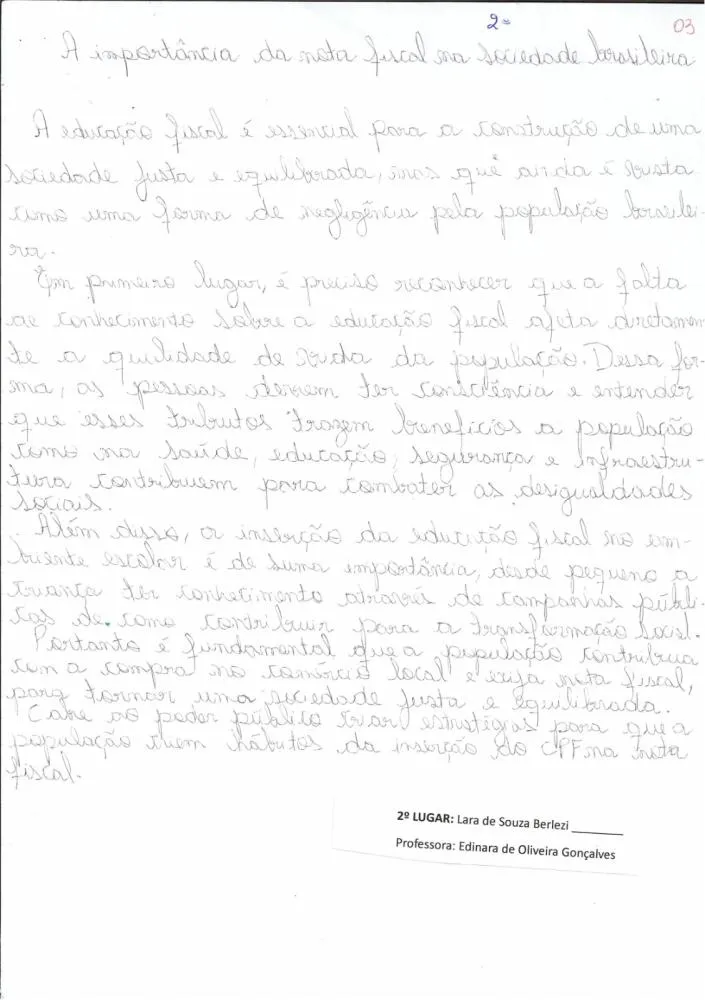 2º
03
A importância da nota fiscal na sociedade brasileira
A educação fiscal é essencial para a construção de uma
sociedade justa e equilibrada, mas que ainda é vista
como uma forma de negligência pela população brasilei-
ra.
Em primeiro lugar, é preciso reconhecer que a falta
de conhecimento sobre a educação fiscal afeta diretamen-
te a qualidade de vida da população. Dessa for-
ma, as pessoas devem ter consciência e entender
que esses tributos trazem benefícios a população
como na saúde, educação, segurança e infraestru-
tura contribuem para combater as desigualdades
sociais.
Além disso, a inserção da educação fiscal no am-
biente escolar é de suma importância, desde pequeno a
criança ter conhecimento através de campanhas públi-
cas de como contribuir para a transformação social.
Portanto é fundamental que a população contribua
com a compra no comércio local e exija nota fiscal,
para tornar uma sociedade justa e equilibrada.
Cabe ao poder público criar estratégias para que a
população criem hábitos da inserção do CPF na nota
fiscal.
2º LUGAR: Lara de Souza Berlezi
Professora: Edinara de Oliveira Gonçalves